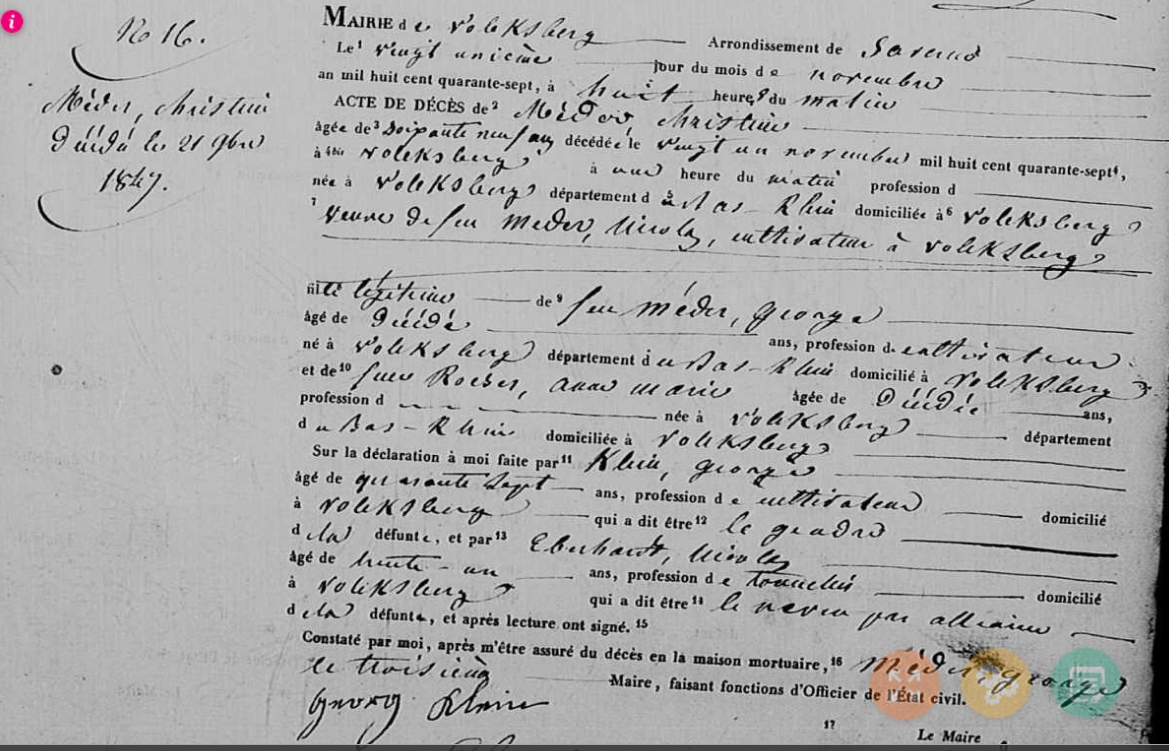 No 16.
Méder, Christine
Décédée le 21 9bre
1847.
MAIRIE de Volksberg Arrondissement de Saverne
Le¹ vingt unième jour du mois de novembre
an mil huit cent quarante-sept, à huit heures du matin
ACTE DE DÉCÈS de² Méder, Christine
âgée de³ soixante neuf ans décédée le vingt un novembre mil huit cent quarante-sept⁴,
à ⁴ᵇⁱˢ Volksberg, à une heure du matin profession d
née à Volksberg département du⁵ Bas-Rhin domiciliée à⁶ Volksberg
⁷ veuve de feu Meder, Nicolas, cultivateur à Volksberg
fille légitime de⁹ feu Méder, George
âgé de Décédé ans, profession de cultivateur
né à Volksberg département du Bas-Rhin domicilié à Volksberg
et de¹⁰ feue Roeser, Anne Marie âgée de Décédée ans,
profession d née à Volksberg département
du Bas-Rhin domiciliée à Volksberg
Sur la déclaration à moi faite par¹¹ Klein, George
âgé de quarante sept ans, profession de cultivateur domicilié
à Volksberg qui a dit être¹² le gendre
de la défunte, et par¹³ Eberhardt, Nicolas
âgé de trente-un ans, profession de domicilié
à Volksberg qui a dit être¹⁴ le neveu par alliance
de la défunte, et après lecture ont signé. ¹⁵
Constaté par moi, après m'être assuré du décès en la maison mortuaire,¹⁶ Méder, George
le troisième Maire, faisant fonctions d'Officier de l'État civil.
Georg Klein
¹⁷
Le Maire